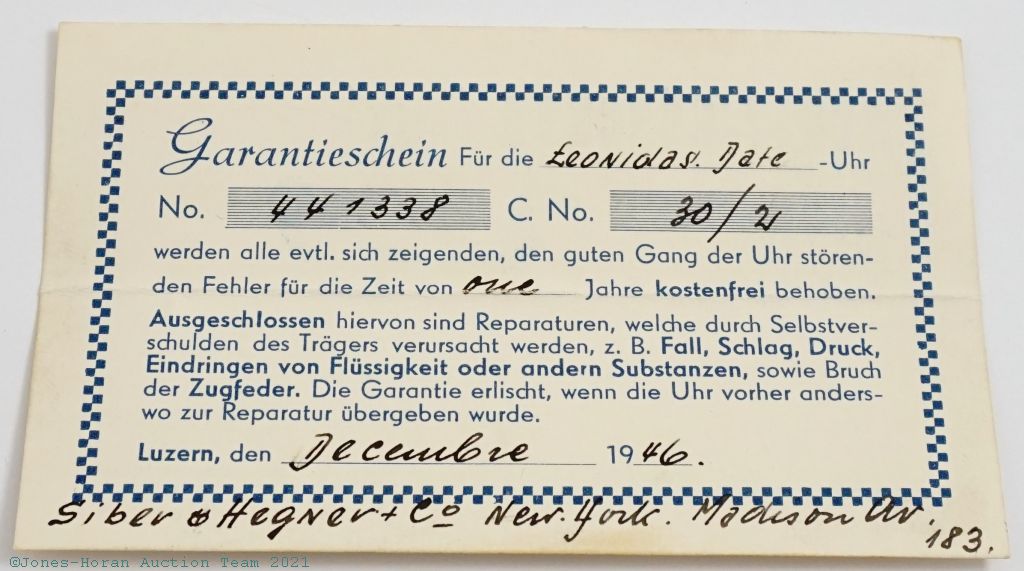 Garantieschein Für die Leonidas. Date -Uhr
No. 441338 C. No. 30/2
werden alle evtl. sich zeigenden, den guten Gang der Uhr stören-
den Fehler für die Zeit von one Jahre kostenfrei behoben.
Ausgeschlossen hiervon sind Reparaturen, welche durch Selbstver-
schulden des Trägers verursacht werden, z. B. Fall, Schlag, Druck,
Eindringen von Flüssigkeit oder andern Substanzen, sowie Bruch
der Zugfeder. Die Garantie erlischt, wenn die Uhr vorher anders-
wo zur Reparatur übergeben wurde.
Luzern, den Decembre 1946.
Siber & Hegner + Co New. York. Madison Av.
183.
©Jones-Horan Auction Team 2021